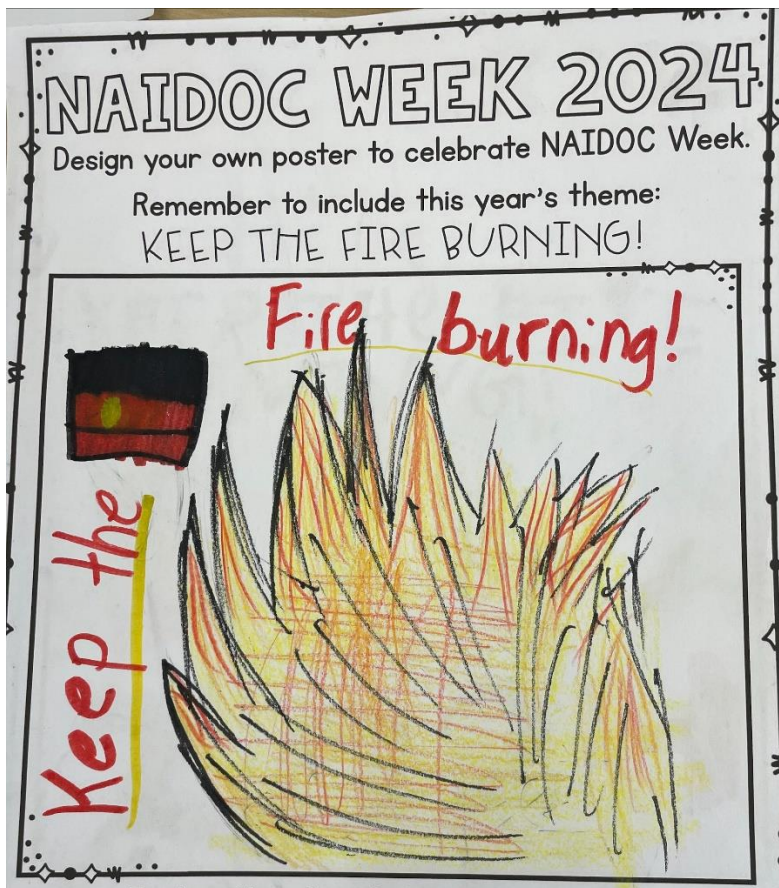 NAIDOC WEEK 2024
Design your own poster to celebrate NAIDOC Week.
Remember to include this year's theme:
KEEP THE FIRE BURNING!
Keep the
Fire burning!